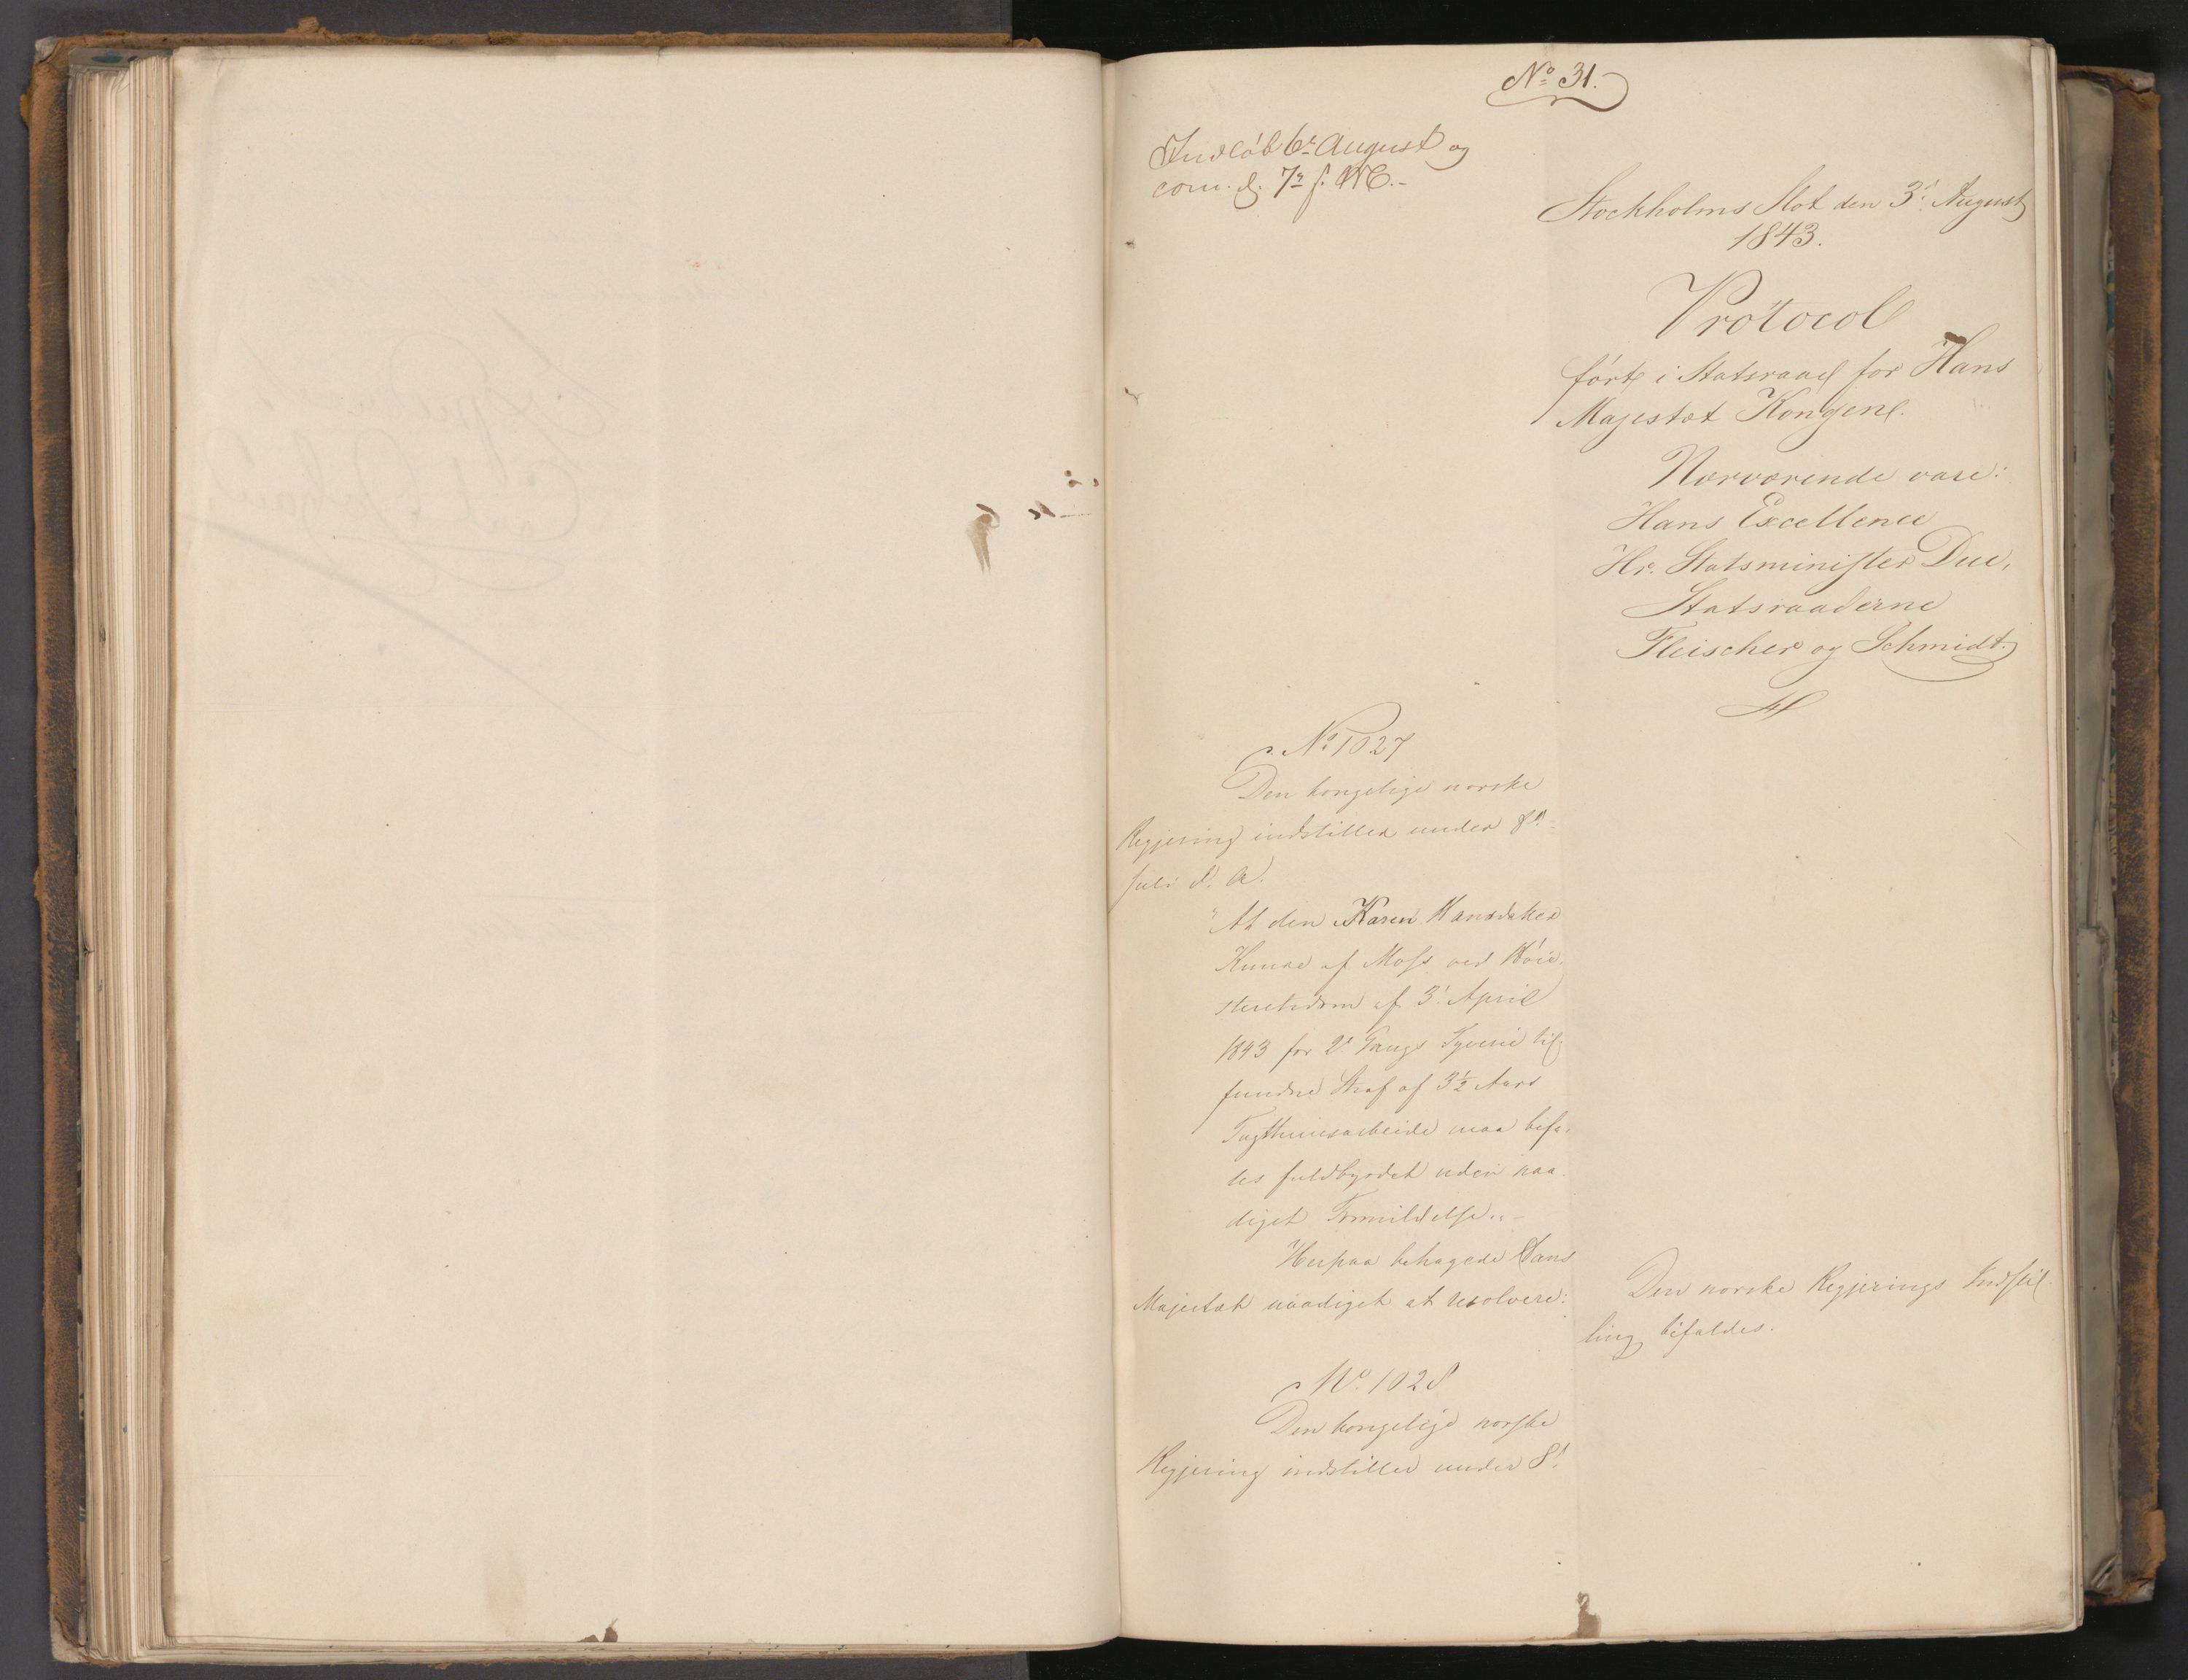 No 31.
Indløb 6te August og
com. d. 7de s. M.-
Stockholms Slot den 3d August
1843.
Protocol
ført i Statsraad for Hans
Majestæt Kongen.
Nærværende vare:
Hans Excellence
Hr. Statsminister Due,
Statsraaderne
Fleischer og Schmidt.
No 1027
Den kongelige norske
Regjering indstiller under 8d
Juli d. A.
"At den Karen Hansdatter
af Moss ved Høie-
steretsdom af 3d April
1843 for 2d Gangs Tyverie til-
fundne Straf af 3½ Aars
Tugthuusarbeide maa befa-
les fuldbyrdet uden naa-
digst Formildelse."-
Herpaa behagede Hans
Majestæt naadigst at resolvere:
Den norske Regjerings Indstil-
ling bifaldes.
No 1028
Den kongelige norske
Regjering indstiller under 8d